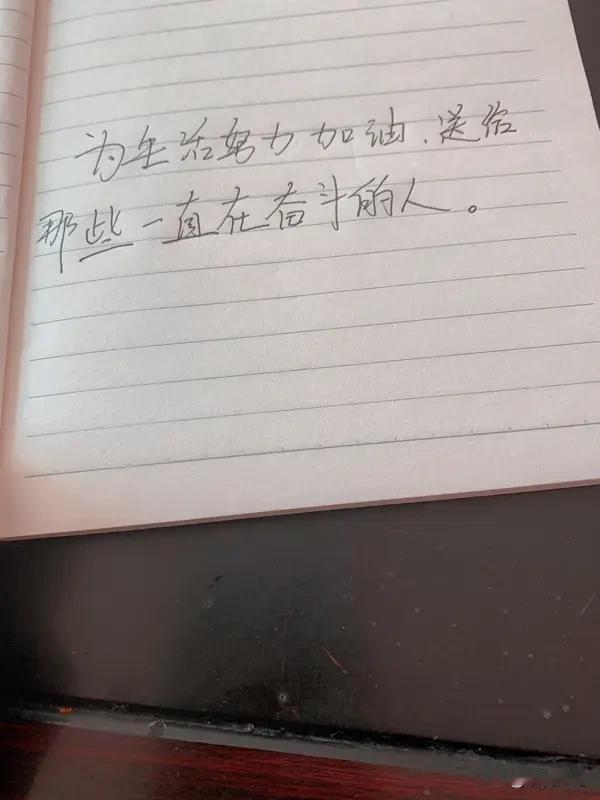 为生活努力加油，送给
那些一直在奋斗的人。